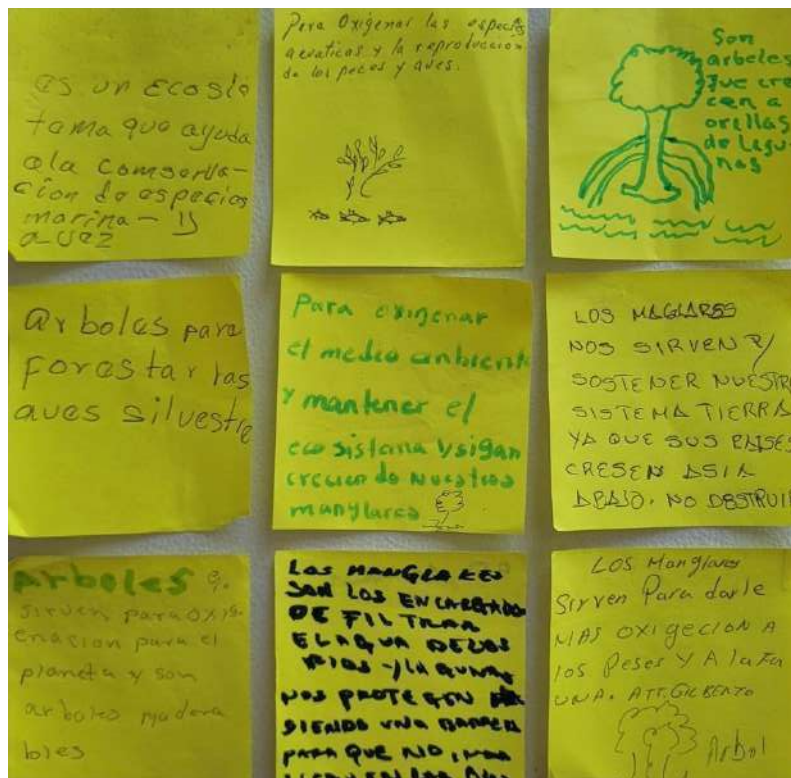 es un Ecosis
tama que ayuda
ala comserva-
cion de especies
marina - y
avez
Para Oxigenar las especies
acuaticas y la reproduccion
de los peces y aves.
Son
arboles
que cre
cen a
orillas
de Lagu-
nas
arboles para
Forestar las
aves silvestre
Para oxigenar
el medio anbiente
y mantener el
ecosistema y sigan
creciendo nuestros
manglares
LOS MAGLARES
NOS SIRVEN P/
SOSTENER NUESTRO
SISTEMA TIERRA
YA QUE SUS RAISES
CRESEN ASIA
ABAJO. NO DESTRUIR
Arboles q.
sirven para oxig-
enacion para el
planeta y son
arboles madera
bles
LOS MANGLARES
SON LOS ENCARGADO
DE FILTRAR
EL AGUA DE LOS
RIOS - / LAGUNAS
NOS PROTEGEN
SIENDO UNA BARRERA
PARA QUE NO
LOS Manglares
Sirven Para darle
MAS OXIGECION A
los Peses Y A la Fa
UNA. ATT. GILBERTO
Arbol